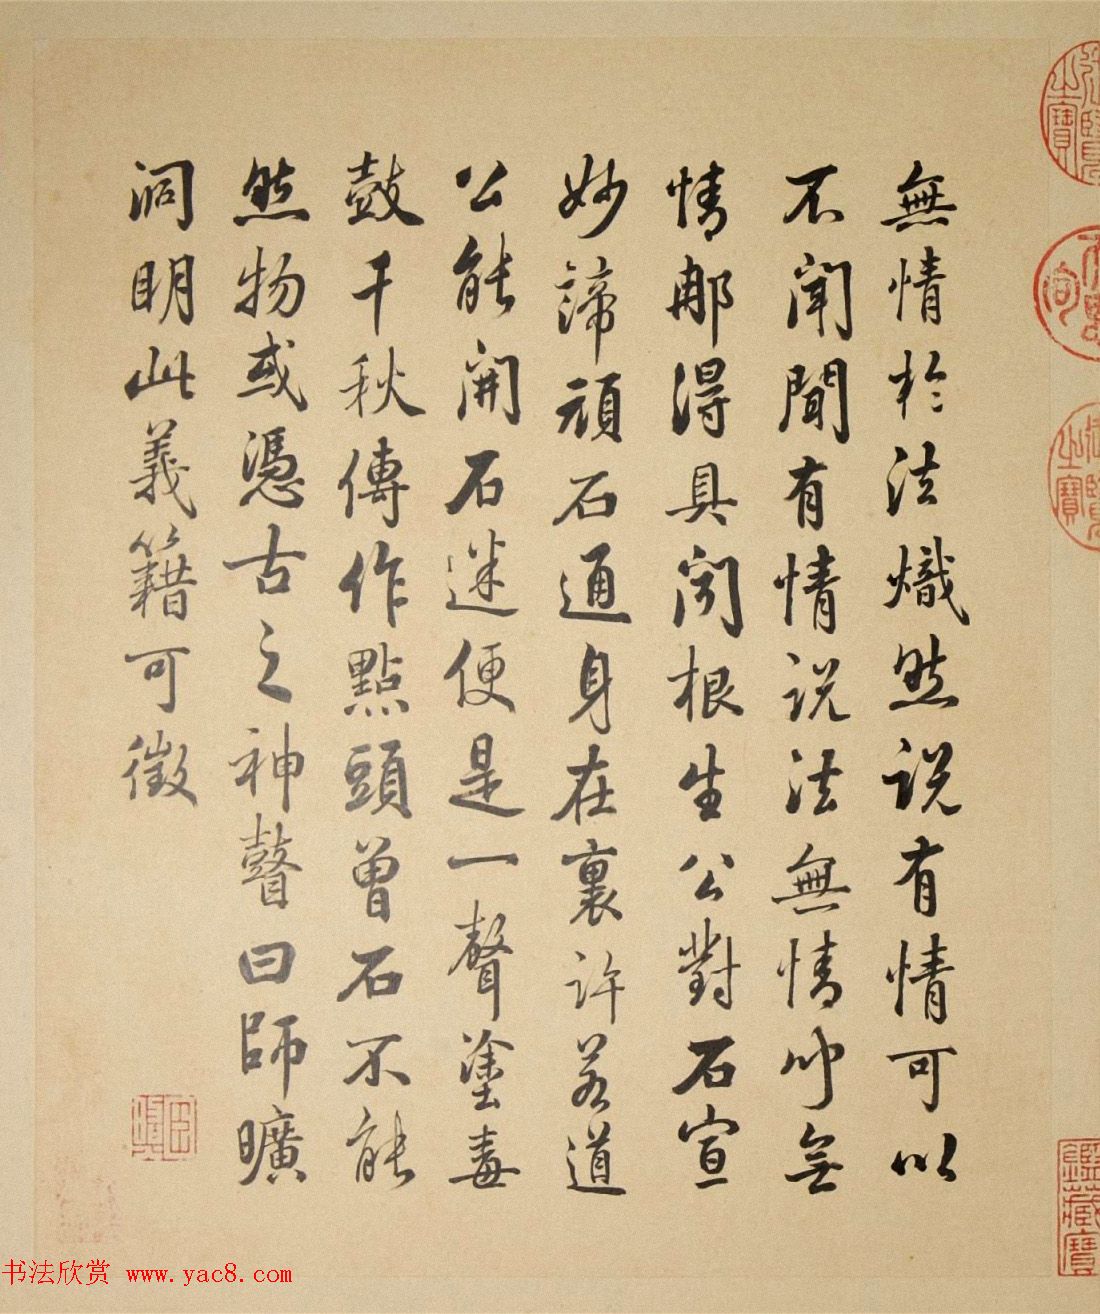 無情於法熾然説有情可以
不聞聞有情説法無情叩无
情那得具聞根生公對石宣
妙諦頑石通身在裏許若道
公能開石迷便是一聲塗毒
鼓千秋傳作點頭曾石不能
然物或憑古之神瞽曰師曠
洞明此義籍可徵
之寶
之寶
鑑藏寶
臣
书法欣赏 www.yac8.com